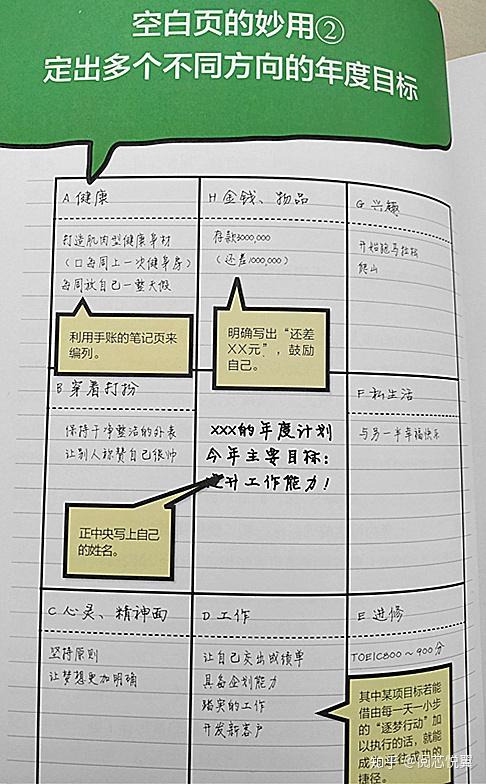 空白页的妙用②
定出多个不同方向的年度目标
A 健康
打造肌肉型健康身材
（口每周上一次健身房）
每周放自己一整天假
利用手账的笔记页来
编列。
H 金钱、物品
存款3000,000
（还差1000,000）
明确写出“还差
XX元”，鼓励
自己。
G 兴趣
开始跑马拉松
爬山
B 穿着打扮
保持干净整洁的外表
让别人称赞自己很帅
正中央写上自己
的姓名。
xxx的年度计划
今年主要目标：
升工作能力！
F 私生活
与另一半幸福快乐
C 心灵、精神面
坚持原则
让梦想更加明确
D 工作
让自己交出成绩单
具备企划能力
踏实的工作
开发新客户
E 进修
TOEIC800～900分
其中某项目标若能
借由每一天一小步
的“逐梦行动”加
以执行的话，就能
成 往成功的
捷径。
知乎 @阅芯悦翼